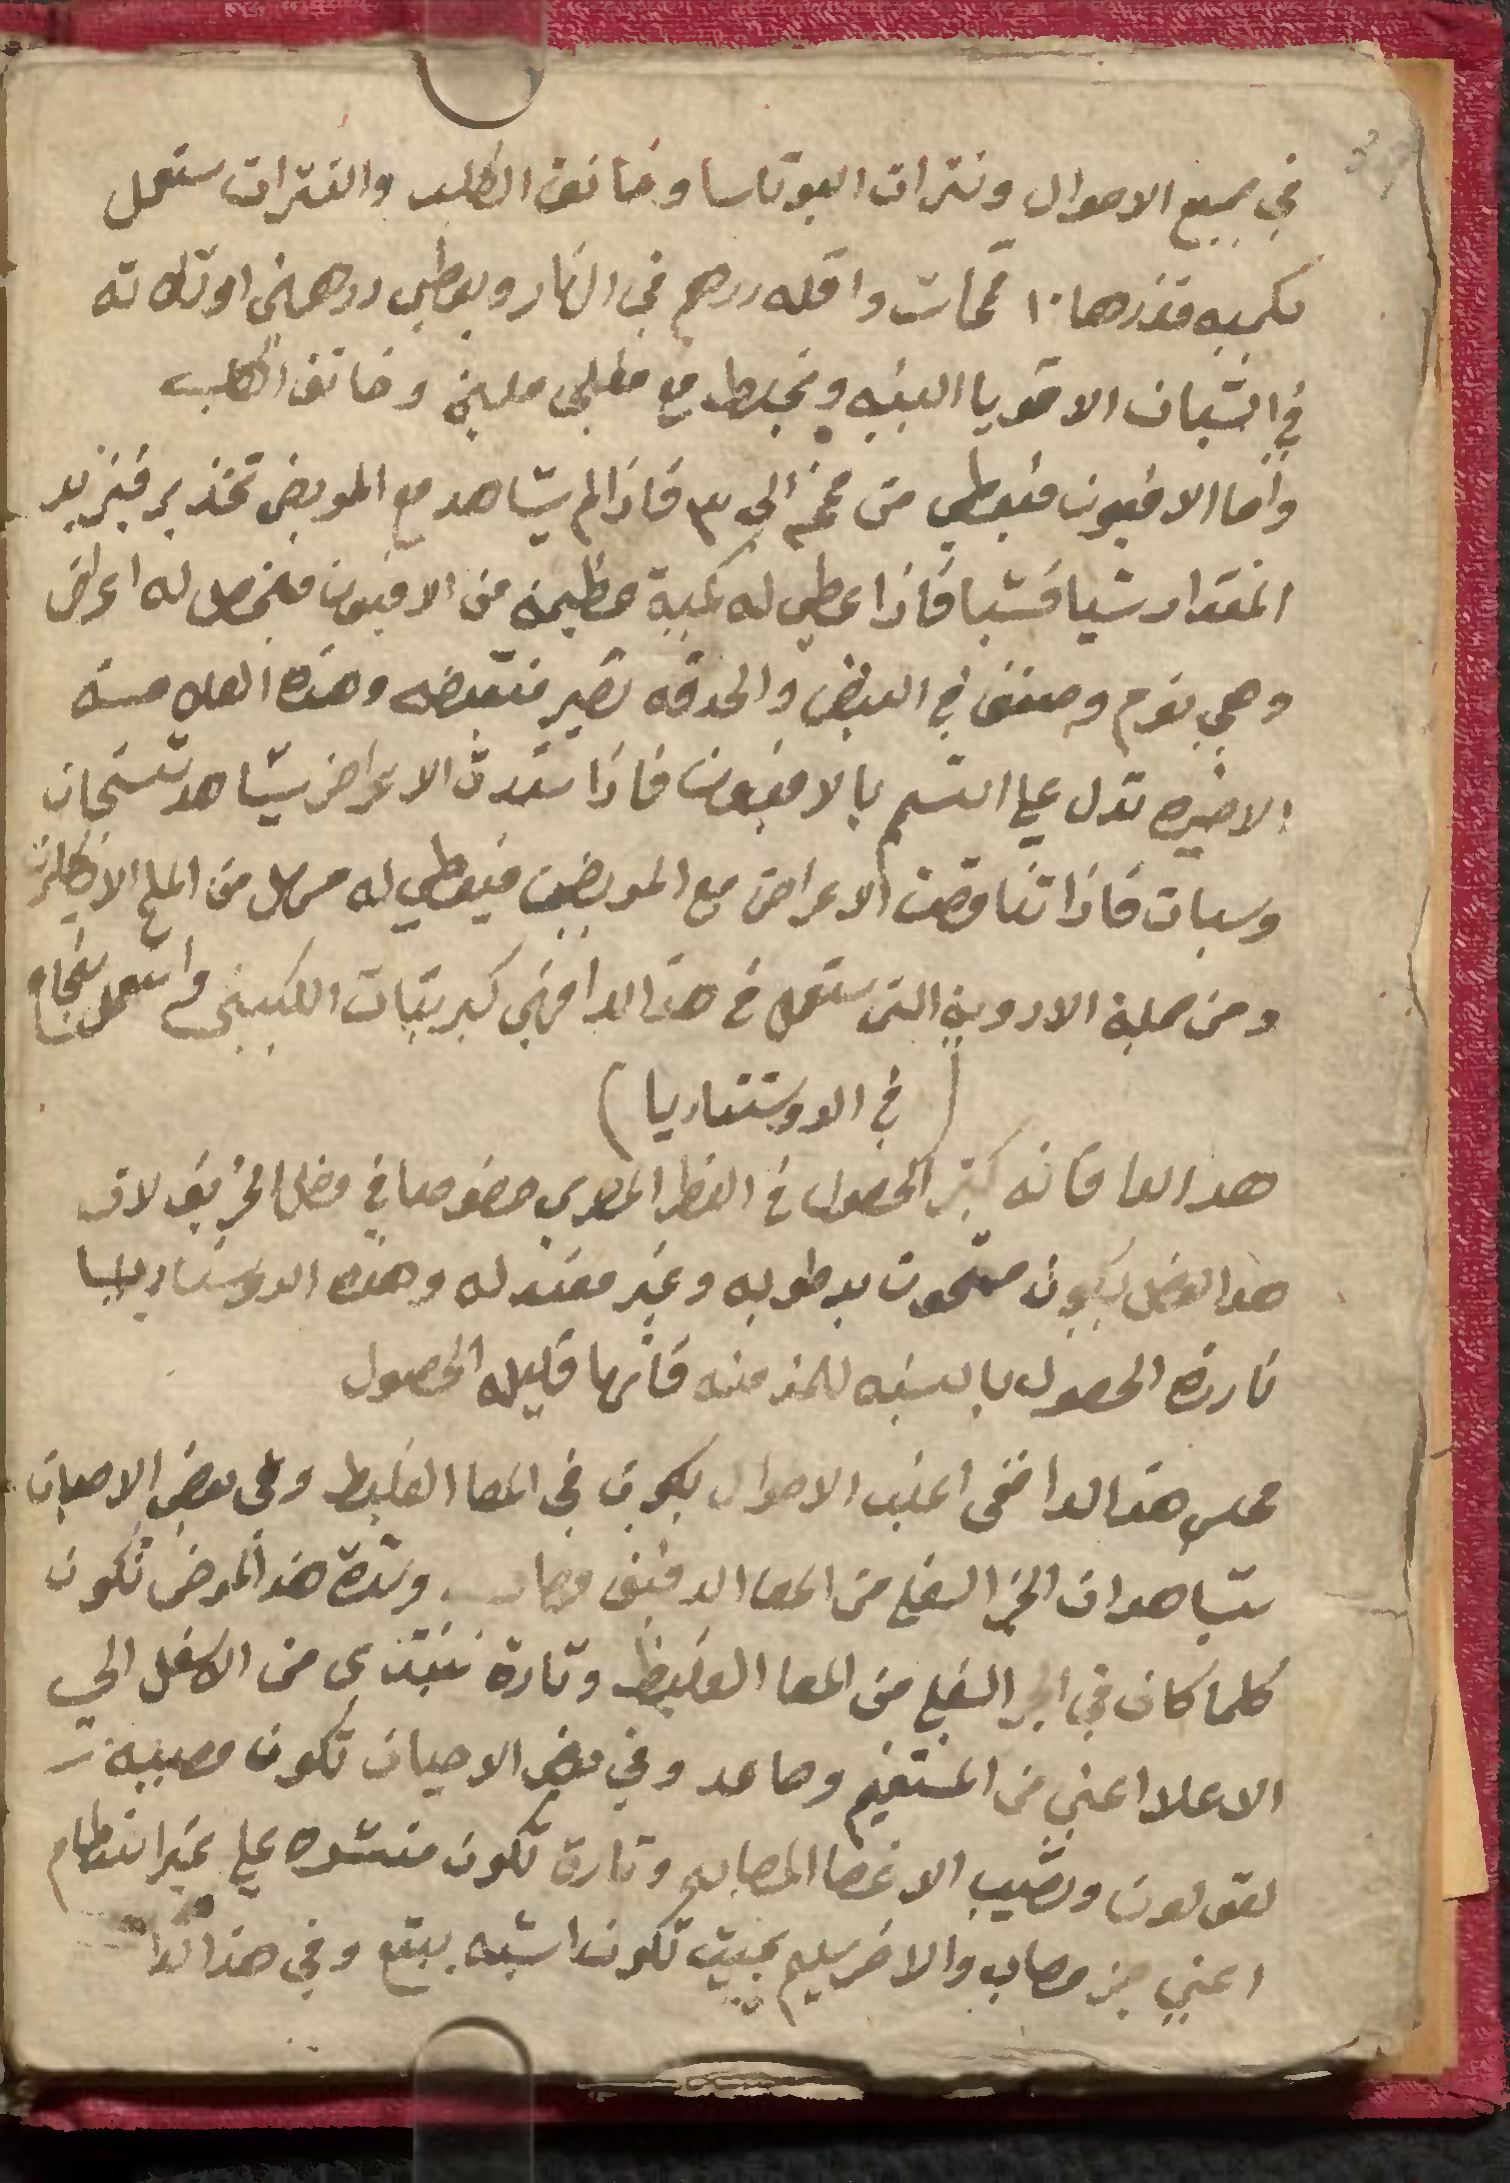 في جميع الاحوال ونترات البوتاسا وخانق الكلب والنترات ستعمل
بكميه قدرها ١٠ قمحات واقله درهم في النهار ويعطي درهمين او تلاته
في الشبان الاقويا البنيه ويخلط مع مغلي ملين وخانق الكلب
واما الافيون فيعطي من قمحه الي ٣ فاذا لم يشاهد مع المريض تخدير فيزيد
المقدار شيا فشيا فاذا اعطي له كمية عظيمة من الافيون فيحصل له اعراض
وهي نوم وضعف في النبض والحدقه تصير منقبضه وهذه العلامة
الاخيره تدل علي التسمم بالافيون فاذا شدت الاعراض يشاهد تشنجات
وسبات فاذا تناقصت الاعراض مع المريض فيعطي له مسهل من الملح الانكليزي
ومن جملة الادوية التي ستعمل في هذا الدا فهي كبريتات الكينين واستعمل بنجاح
( في الدوسنتاريا )
هذا الدا فانه كثير الحصول في القطر المصري خصوصا في فصل الخريف لان
هذا الفصل يكون مشحون برطوبه وغير معتدله وهذه الدوسنتاريا
نادرة الحصول بالنسبه للمزمنه فانها قليله الحصول
مجلس هذا الدا ففي اغلب الاحوال يكون في المعا الغليظ وفي بعض الاحيان
يشاهد ان الجز السفلي من المعا الدقيق مصاب وشدة هذا المرض تكون
كلما كان في الجز السفلي من المعا الغليظ وتارة تبتدي من الاسفل الي
الاعلا اعني من المستقيم وصاعد وفي بعض الاحيان تكون مصيبة
لقولون وتصيب الاغصا المصابه وتارة تكون منتشره علي غير انتظام
اعني جز مصاب والاخر سليم بحيث تكون اشبه ببقع وفي هذا الدا